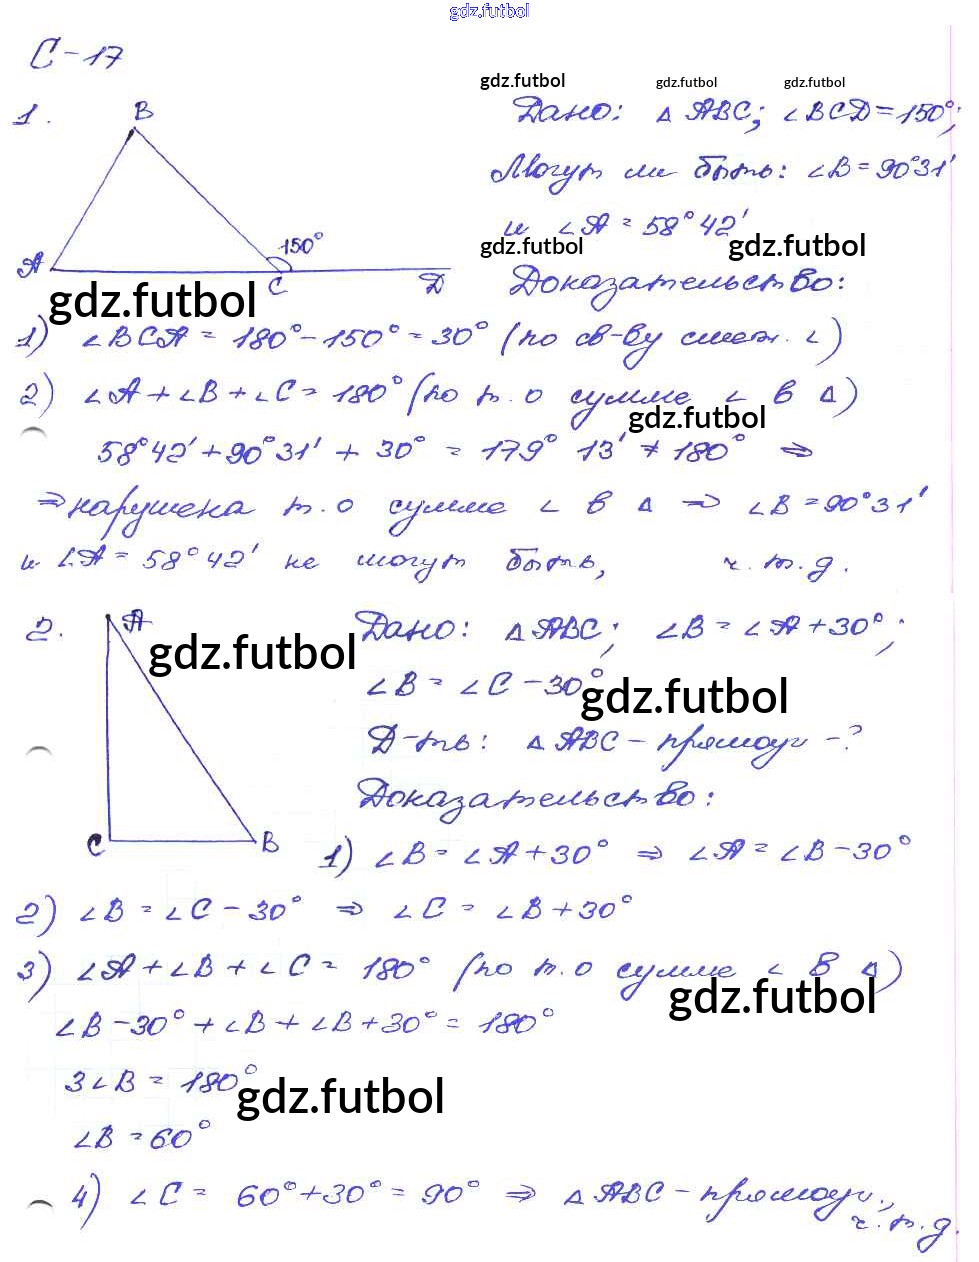 gdz.futbol
С-17
gdz.futbol gdz.futbol gdz.futbol
1.
B
150°
A
C
D
Дано: △ ABC; ∠BCD=150°;
Могут ли быть: ∠B=90°31'
и ∠A = 58°42'
gdz.futbol gdz.futbol
Доказательство:
gdz.futbol
1) ∠BCA = 180°-150°=30° (по св-ву смеж. ∠)
2) ∠A+∠B+∠C=180° (по т. о сумме ∠ в △)
gdz.futbol
58°42'+90°31' + 30° = 179° 13' ≠ 180° ⇒
⇒ нарушена т. о сумме ∠ в △ ⇒ ∠B=90°31'
и ∠A=58°42' не могут быть, ч.т.д.
2.
A
C
B
gdz.futbol
Дано: △ABC; ∠B=∠A+30°;
∠B=∠C-30°
gdz.futbol
Д-ть: △ABC-прямоуг-?
Доказательство:
1) ∠B=∠A+30° ⇒ ∠A=∠B-30°
2) ∠B=∠C-30° ⇒ ∠C=∠B+30°
3) ∠A+∠B+∠C=180° (по т. о сумме ∠ в △)
gdz.futbol
∠B-30°+∠B+∠B+30°=180°
3∠B=180°
gdz.futbol
∠B=60°
4) ∠C= 60°+30°=90° ⇒ △ABC-прямоуг.,
ч.т.д.